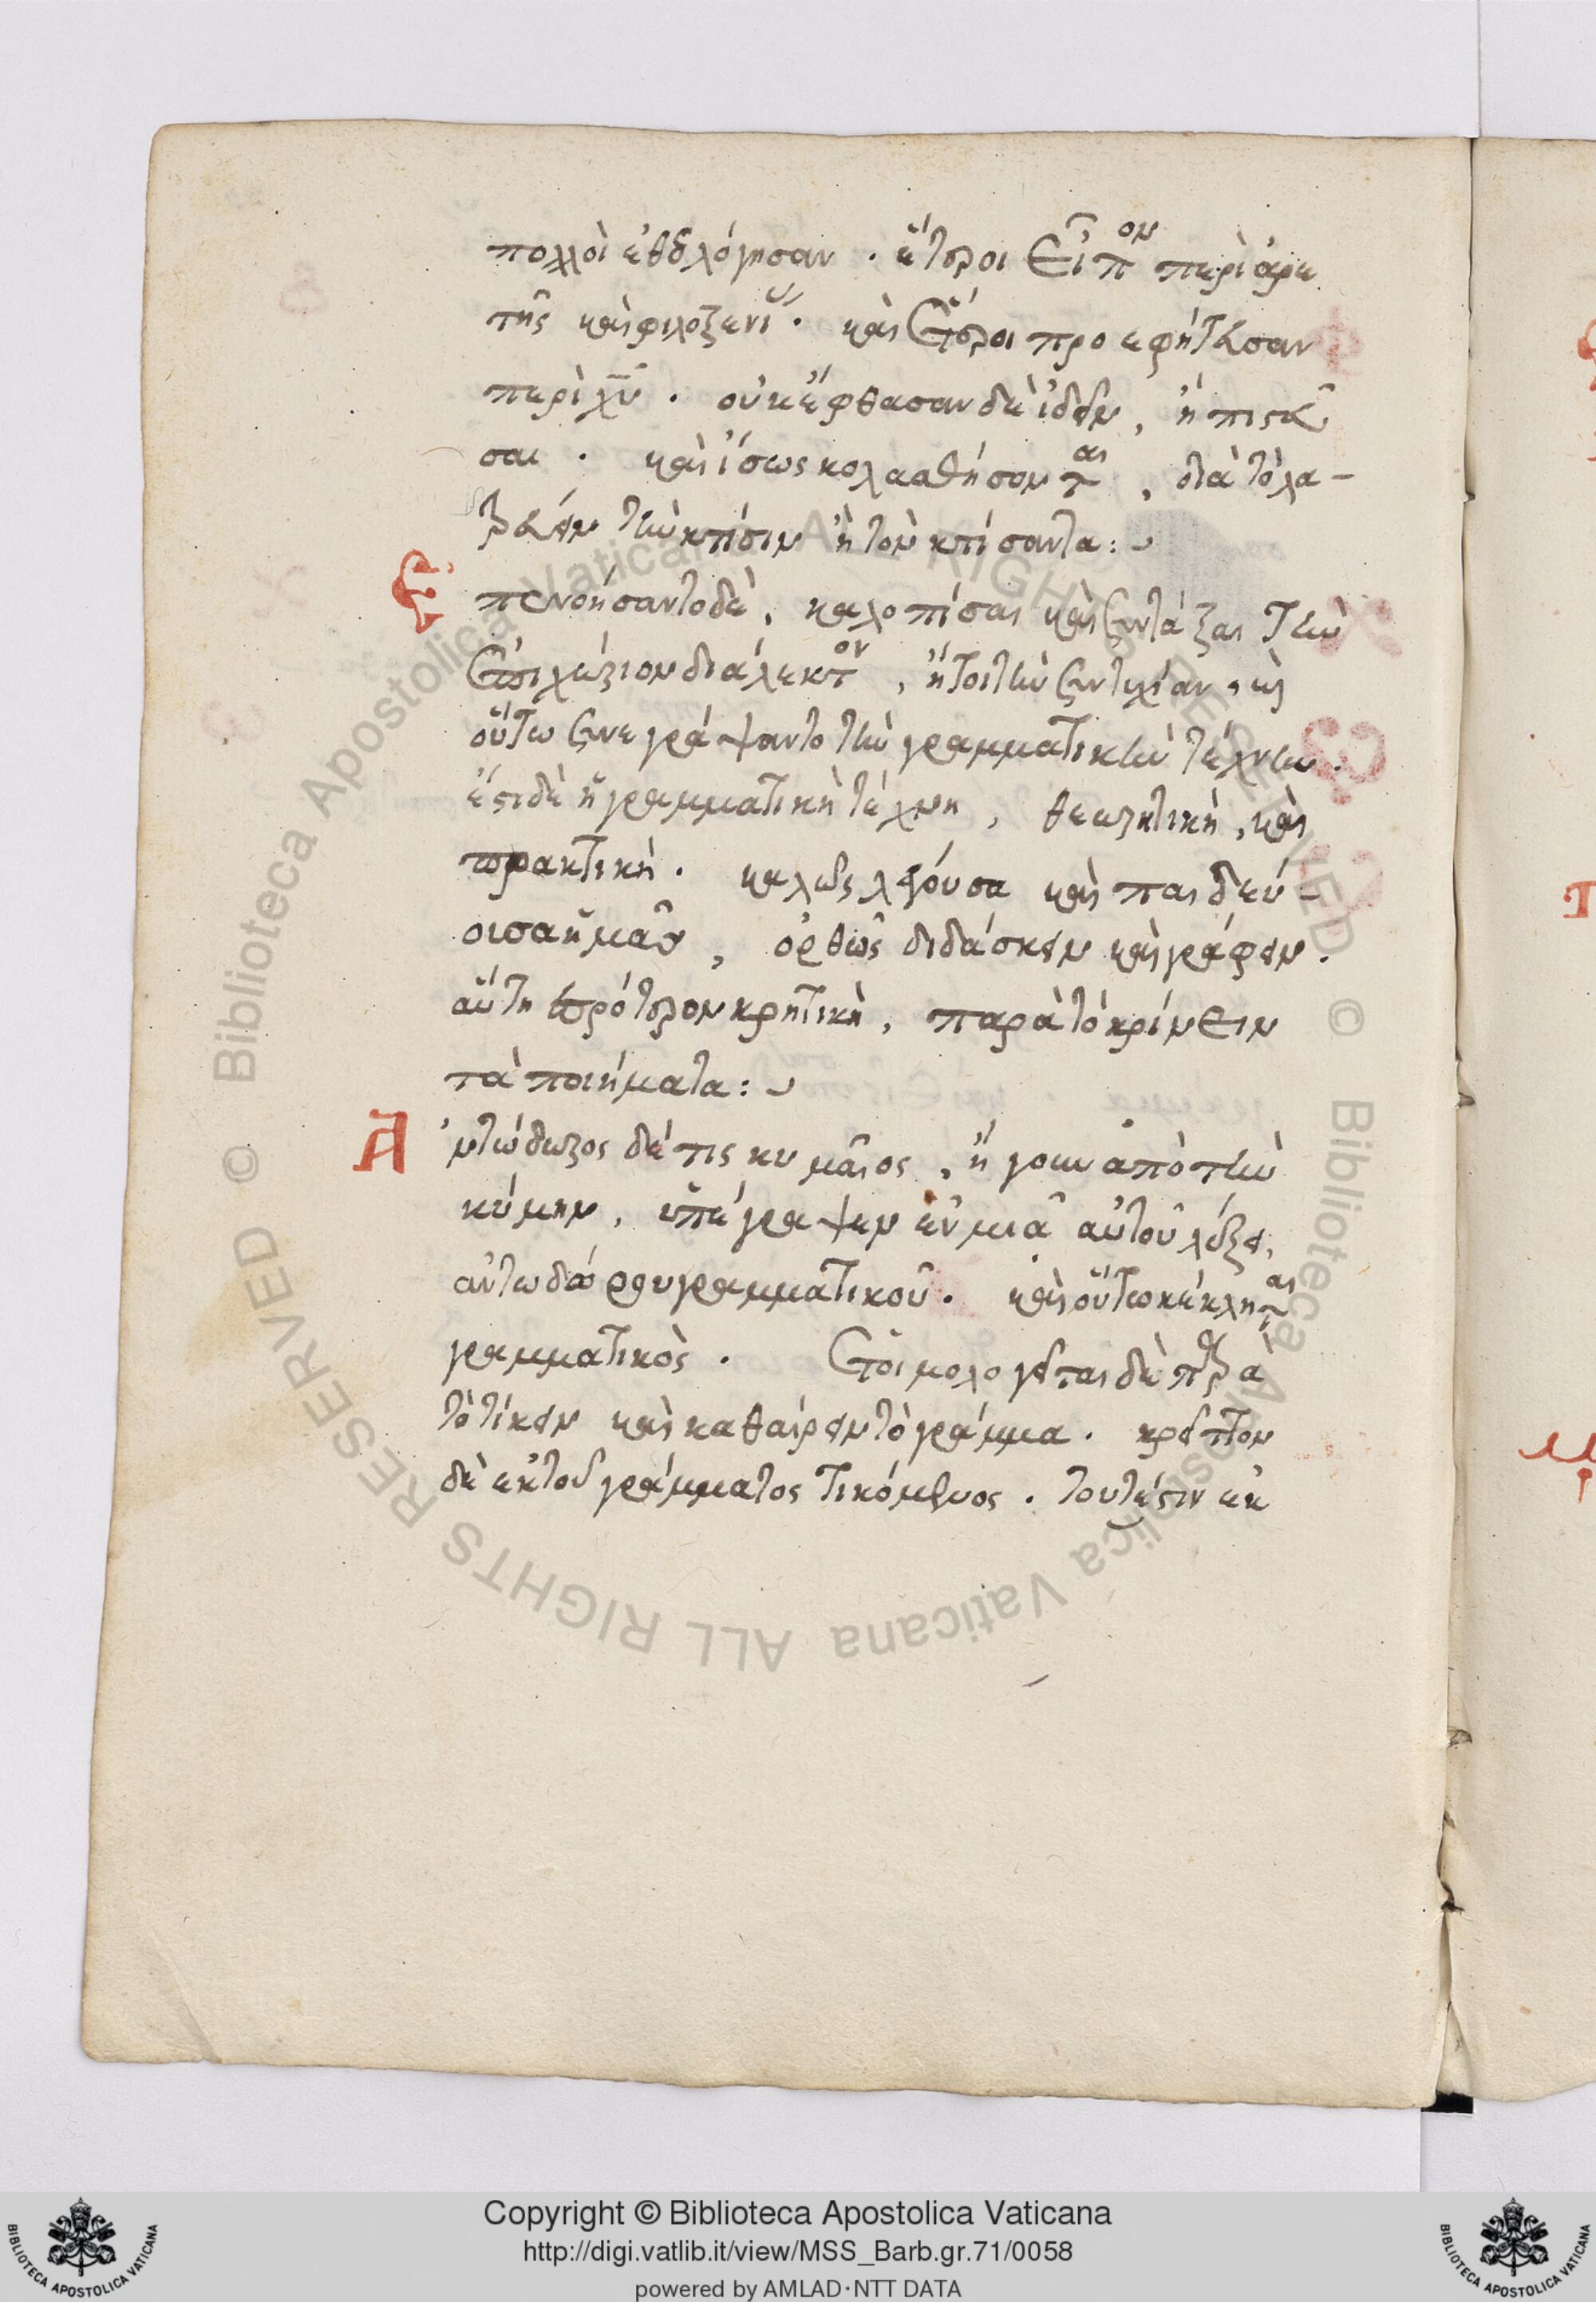 πολλοὶ ἐθεολόγησαν . ἕτεροι εἶπον περὶ ἀρε
τῆς καὶ φιλοξενίας . καὶ ἕτεροι προεφήτευσαν
περὶ χῦ . οὐκ ἔφθασαν δὲ ἰδεῖν , ἢ πιστεῦ
σαι . καὶ ἴσως κολασθήσονται , διὰ τὸ λα-
τρεύειν τὴν κτίσιν ἢ τὸν κτίσαντα :
Ἐπενοήσαντο δὲ , καλοπίσαι καὶ συντάξαι τὴν
ἐπιλώζιον διάλεκτον , ἤτοι τὴν συντυχίαν , καὶ
οὕτω συνεγράψαντο τὴν γραμματικὴν τέχνην .
ἔστι δὲ ἡ γραμματικὴ τέχνη , θεωρητικὴ , καὶ
πρακτική . καλῶς λέγουσα καὶ παιδεύ-
οισα ἡμᾶς , ὀρθῶς διδάσκειν καὶ γράφειν .
αὕτη πρότερον κρητικὴ , παρὰ τὸ κρίνειν
τὰ ποιήματα :
Ἀντώδωρος δέ τις κυμαῖος , ἤγουν ἀπὸ τὴν
κύμην , ὑπέγραψεν ἐν μιᾶ αὐτοῦ λέξει ,
ἀντωδώρου γραμματικοῦ . καὶ οὕτω κέκληται
γραμματικὸς . ἐτοιμολογεῖται δὲ παρὰ
τὸ τίκειν καὶ καθαίρειν τὸ γράμμα . κρεῖττον
δὲ ἐκ τοῦ γράμματος τικόμενος . τουτέστιν ἐκ
© Biblioteca Apostolica Vaticana ALL RIGHTS RESERVED © Biblioteca Apostolica Vaticana ALL RIGHTS RESERVED
Copyright © Biblioteca Apostolica Vaticana
http://digi.vatlib.it/view/MSS_Barb.gr.71/0058
powered by AMLAD·NTT DATA
BIBLIOTECA APOSTOLICA VATICANA
BIBLIOTECA APOSTOLICA VATICANA